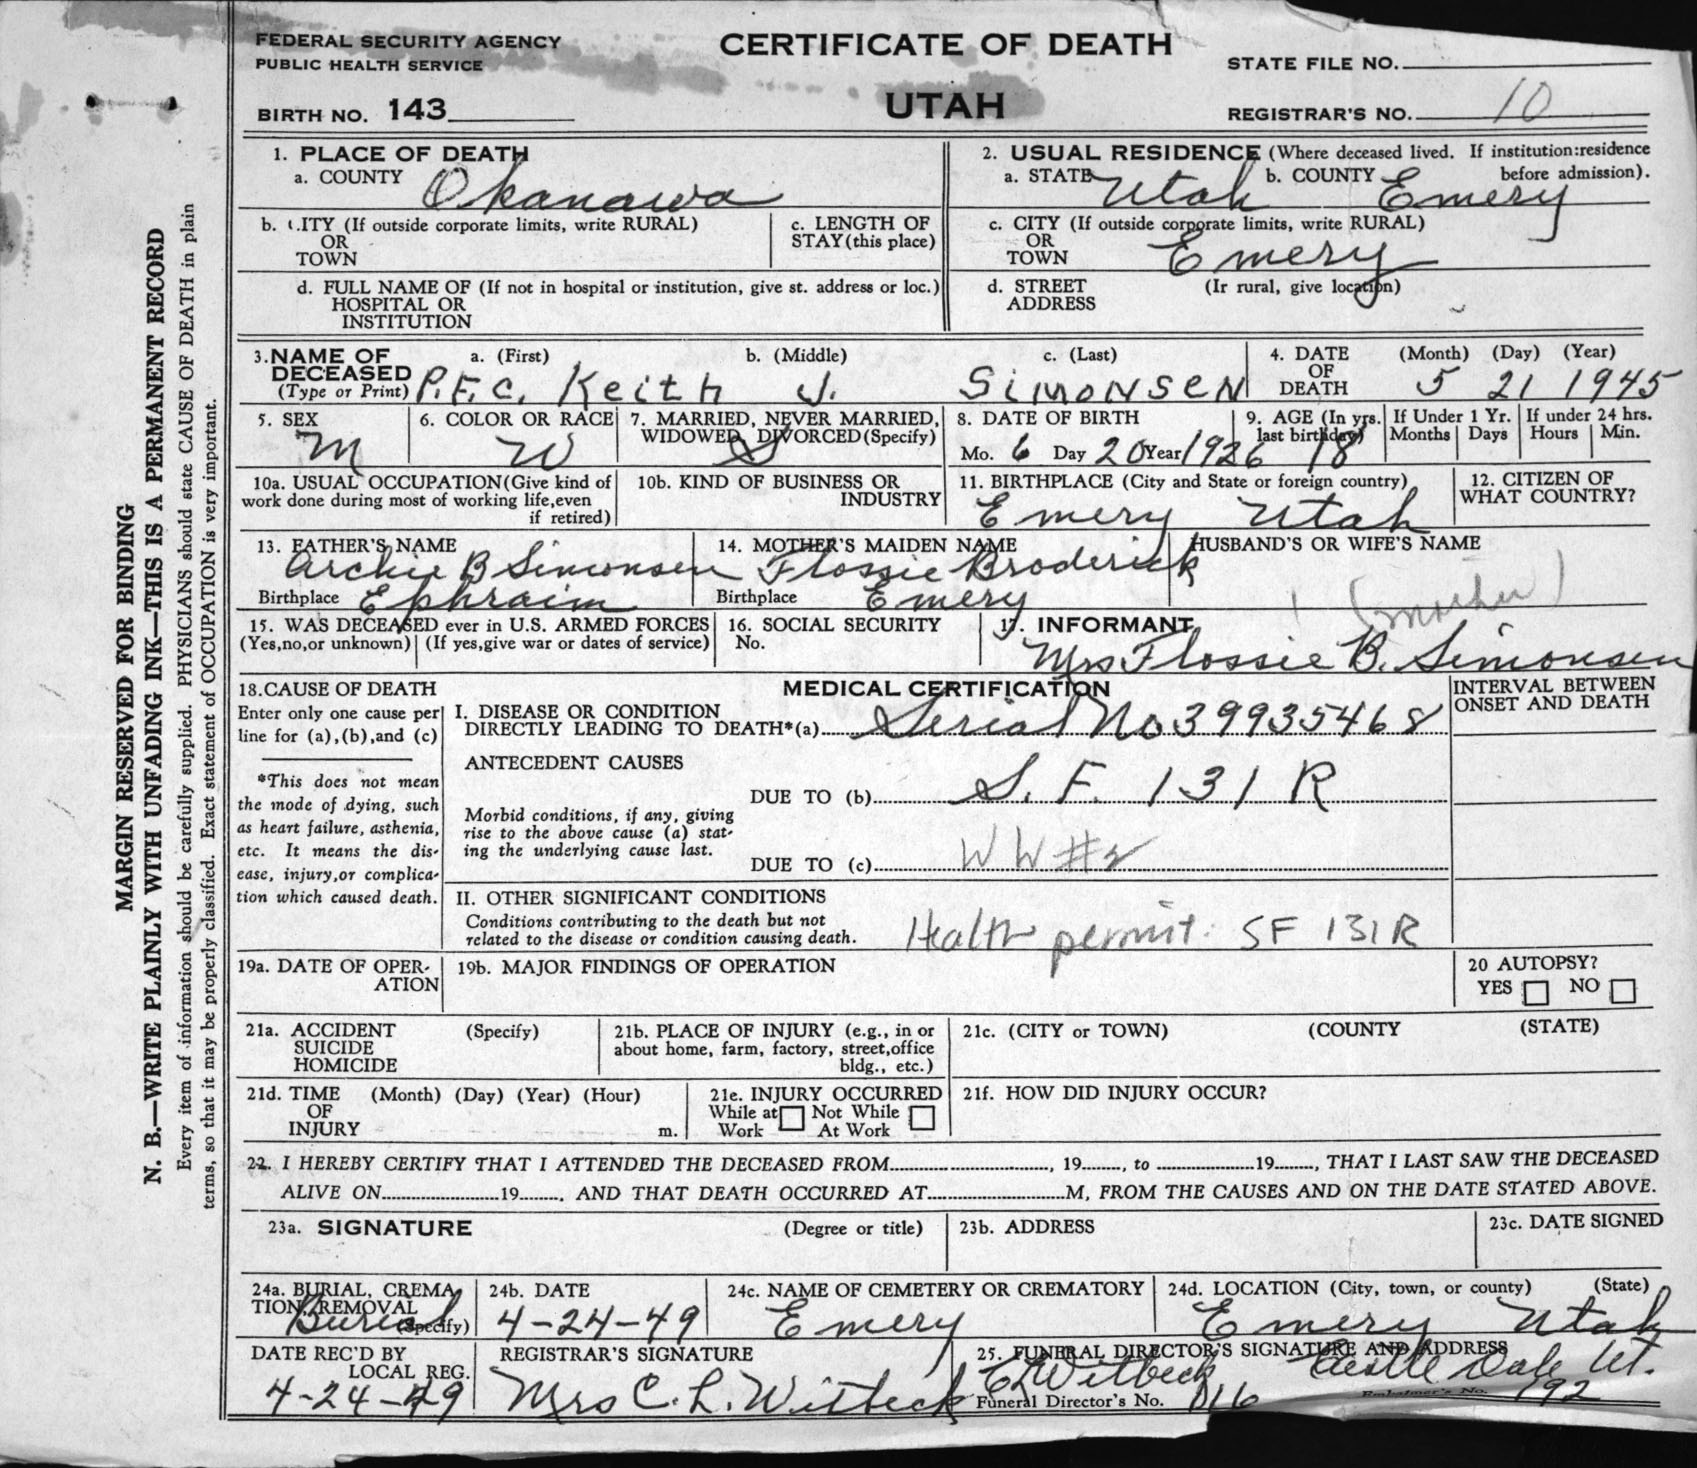 FEDERAL SECURITY AGENCY
PUBLIC HEALTH SERVICE
CERTIFICATE OF DEATH
STATE FILE NO.
BIRTH NO. 143
UTAH
REGISTRAR'S NO. 10
1. PLACE OF DEATH
a. COUNTY Okanawa
2. USUAL RESIDENCE (Where deceased lived. If institution:residence before admission).
a. STATE Utah b. COUNTY Emery
b. CITY (If outside corporate limits, write RURAL)
OR
TOWN
c. LENGTH OF
STAY(this place)
c. CITY (If outside corporate limits, write RURAL)
OR
TOWN Emery
d. FULL NAME OF (If not in hospital or institution, give st. address or loc.)
HOSPITAL OR
INSTITUTION
d. STREET (Ir rural, give location)
ADDRESS
3. NAME OF DECEASED
(Type or Print)
a. (First) b. (Middle) c. (Last)
P.F.C. Keith J. Simonsen
4. DATE OF DEATH (Month) (Day) (Year)
5 21 1945
5. SEX
M
6. COLOR OR RACE
W
7. MARRIED, NEVER MARRIED,
WIDOWED, DIVORCED(Specify)
S
8. DATE OF BIRTH
Mo. 6 Day 20 Year 1926
9. AGE (In yrs. last birthday)
18
If Under 1 Yr.
Months Days
If under 24 hrs.
Hours Min.
10a. USUAL OCCUPATION(Give kind of
work done during most of working life,even
if retired)
10b. KIND OF BUSINESS OR
INDUSTRY
11. BIRTHPLACE (City and State or foreign country)
Emery Utah
12. CITIZEN OF
WHAT COUNTRY?
13. FATHER'S NAME
Archie B Simonsen
Birthplace Ephraim
14. MOTHER'S MAIDEN NAME
Flossie Broderick
Birthplace Emery
HUSBAND'S OR WIFE'S NAME
15. WAS DECEASED ever in U.S. ARMED FORCES
(Yes,no,or unknown) (If yes,give war or dates of service)
16. SOCIAL SECURITY
No.
17. INFORMANT (mother)
Mrs Flossie B. Simonsen
18. CAUSE OF DEATH
Enter only one cause per
line for (a),(b),and (c)
*This does not mean
the mode of dying, such
as heart failure, asthenia,
etc. It means the dis-
ease, injury,or complica-
tion which caused death.
MEDICAL CERTIFICATION
INTERVAL BETWEEN
ONSET AND DEATH
I. DISEASE OR CONDITION
DIRECTLY LEADING TO DEATH*(a) Serial No 39935468
ANTECEDENT CAUSES
DUE TO (b) S.F. 131 R
Morbid conditions, if any, giving
rise to the above cause (a) stat-
ing the underlying cause last.
DUE TO (c) WW#2
II. OTHER SIGNIFICANT CONDITIONS
Conditions contributing to the death but not
related to the disease or condition causing death.
Health permit. SF 131R
19a. DATE OF OPER-
ATION
19b. MAJOR FINDINGS OF OPERATION
20 AUTOPSY?
YES NO
21a. ACCIDENT (Specify)
SUICIDE
HOMICIDE
21b. PLACE OF INJURY (e.g., in or
about home, farm, factory, street,office
bldg., etc.)
21c. (CITY or TOWN) (COUNTY (STATE)
21d. TIME (Month) (Day) (Year) (Hour)
OF
INJURY m.
21e. INJURY OCCURRED
While at Work Not While At Work
21f. HOW DID INJURY OCCUR?
22. I HEREBY CERTIFY THAT I ATTENDED THE DECEASED FROM , 19 , to 19 , THAT I LAST SAW THE DECEASED
ALIVE ON 19 , AND THAT DEATH OCCURRED AT M, FROM THE CAUSES AND ON THE DATE STATED ABOVE.
23a. SIGNATURE (Degree or title)
23b. ADDRESS
23c. DATE SIGNED
24a. BURIAL, CREMA-
TION, REMOVAL
(Specify)
Burial
24b. DATE
4-24-49
24c. NAME OF CEMETERY OR CREMATORY
Emery
24d. LOCATION (City, town, or county) (State)
Emery Utah
DATE REC'D BY
LOCAL REG.
4-24-49
REGISTRAR'S SIGNATURE
Mrs C. L. Witbeck
25. FUNERAL DIRECTOR'S SIGNATURE AND ADDRESS
Witbeck Castle Dale Ut.
Funeral Director's No. 116 Embalmer's No. 192
MARGIN RESERVED FOR BINDING
N. B.—WRITE PLAINLY WITH UNFADING INK—THIS IS A PERMANENT RECORD
Every item of information should be carefully supplied. PHYSICIANS should state CAUSE OF DEATH in plain
terms, so that it may be properly classified. Exact statement of OCCUPATION is very important.